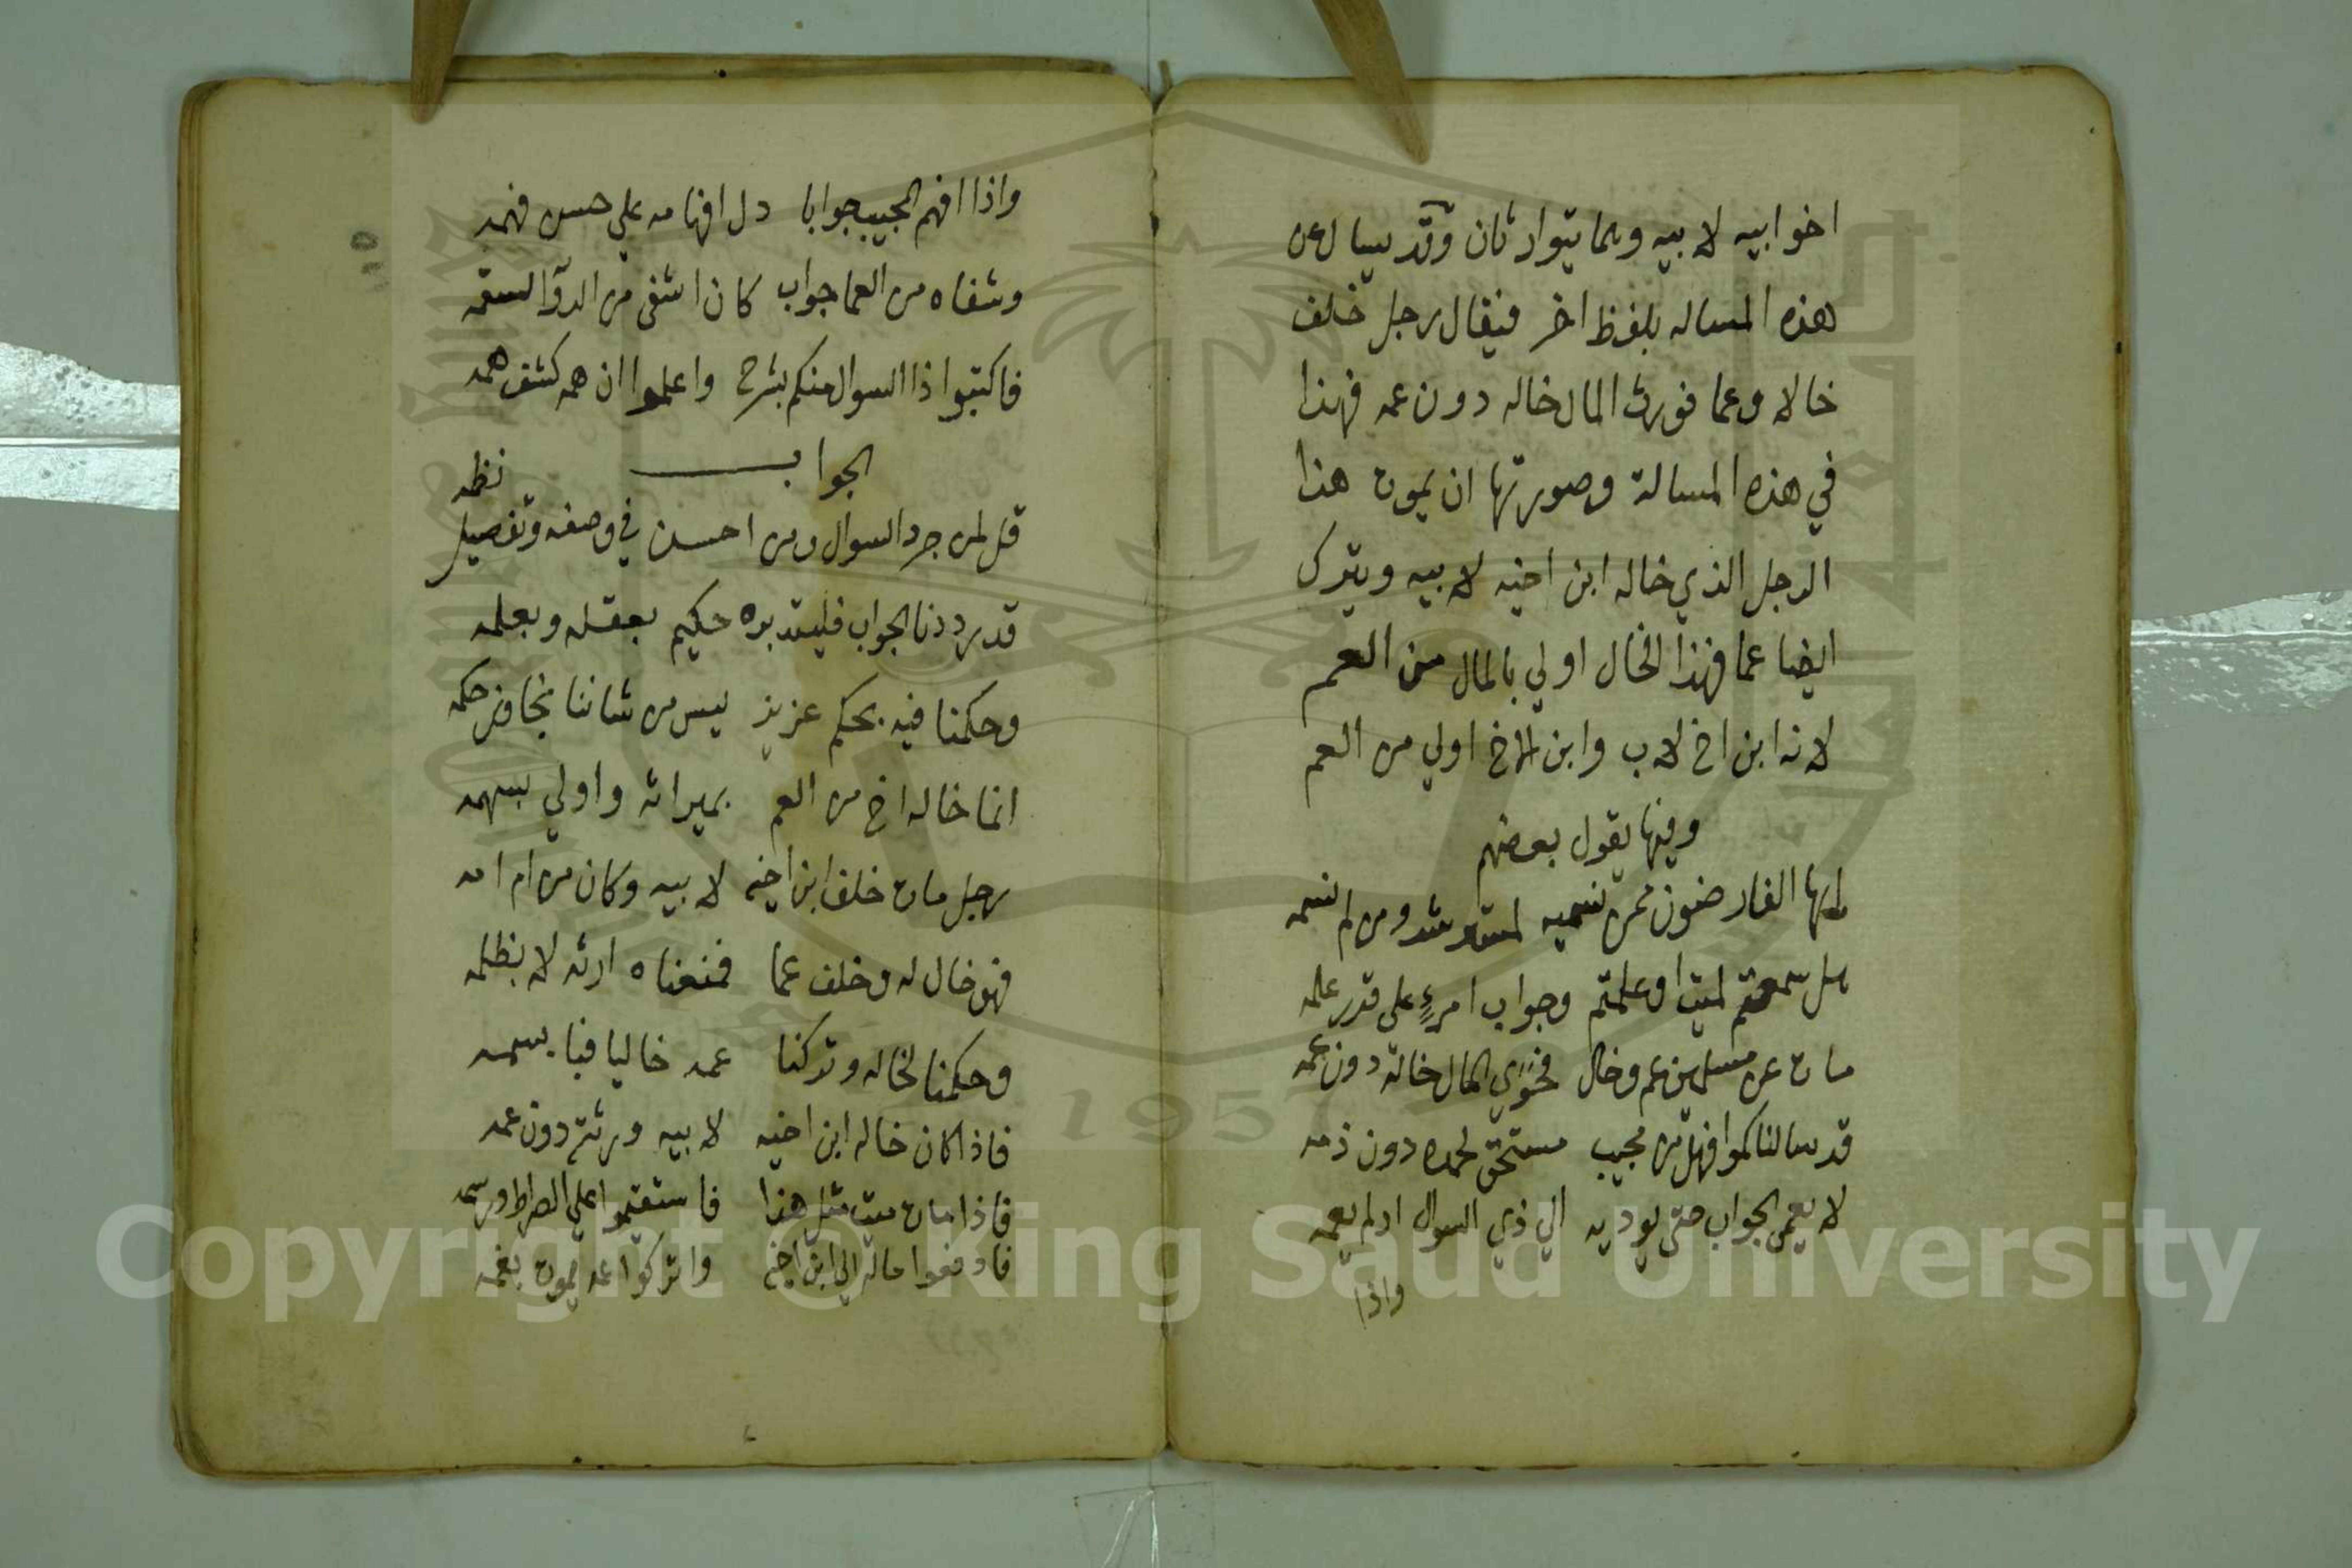 اخوا بيه لابيه وهما يتوارثان وقد يسال عن
هذه المساله بلفظ اخر فيقال رجل خلف
خالا وعما فورث المال خاله دون عمه فهذا
في هذه المسالة وصورتها ان يموت هذا
الرجل الذي خاله ابن اخيه لابيه ويترك
ايضا عما فهذا الخال اولي بالمال من العم
لانه ابن اخ لاب وابن الاخ اولي من العم
وفيها يقول بعضهم
ايها الفارضون من نسميه ومن لم نسمه
هل سمعتم او علمتم وجواب امرءٍ على قدر علمه
مات عن مسلمين عم وخال فحوي المال خاله دون عمه
قد سالناكموا فهل من مجيب مستحق لحمده دون ذمه
لا يعمي الجواب حتى يوديه الي ذي السوال اذ لم يعمه
واذا
واذا افهم المجيب جوابا دل افهامه علي حسن فهمه
وشفاه من العما جواب كان اشفى من الدوآ لسقمه
فاكتبوا ذا السوال منكم بشرح واعلموا ان همه كشف همه
الجواب نظمه
قل لمن جرد السوال ومن احسن في وصفه وتفصيل
قد رددنا الجواب فليتدبره حكيم بعقله وبعلمه
وحكمنا فيه بحكم عزيز ليس من شاننا حكمه
انما خاله اخ من العم بميراثه واولي بسهمه
رجل مات خلف ابن اخيه لابيه وكان من ام امه
فهو خال له وخلف عما فمنعناه ارثه لا بظلمه
وحكمنا لخاله وتركنا عمه خاليا
فاذا كان خاله ابن اخيه لابيه ورثته دون عمه
فاذا مات ميت مثل هذا فاستقيموا علي الصراط ورسمه
فادفعوا ماله الي ابن اخيه واتركوا عمه يموت بغمه
Copyright © King Saud University
1957